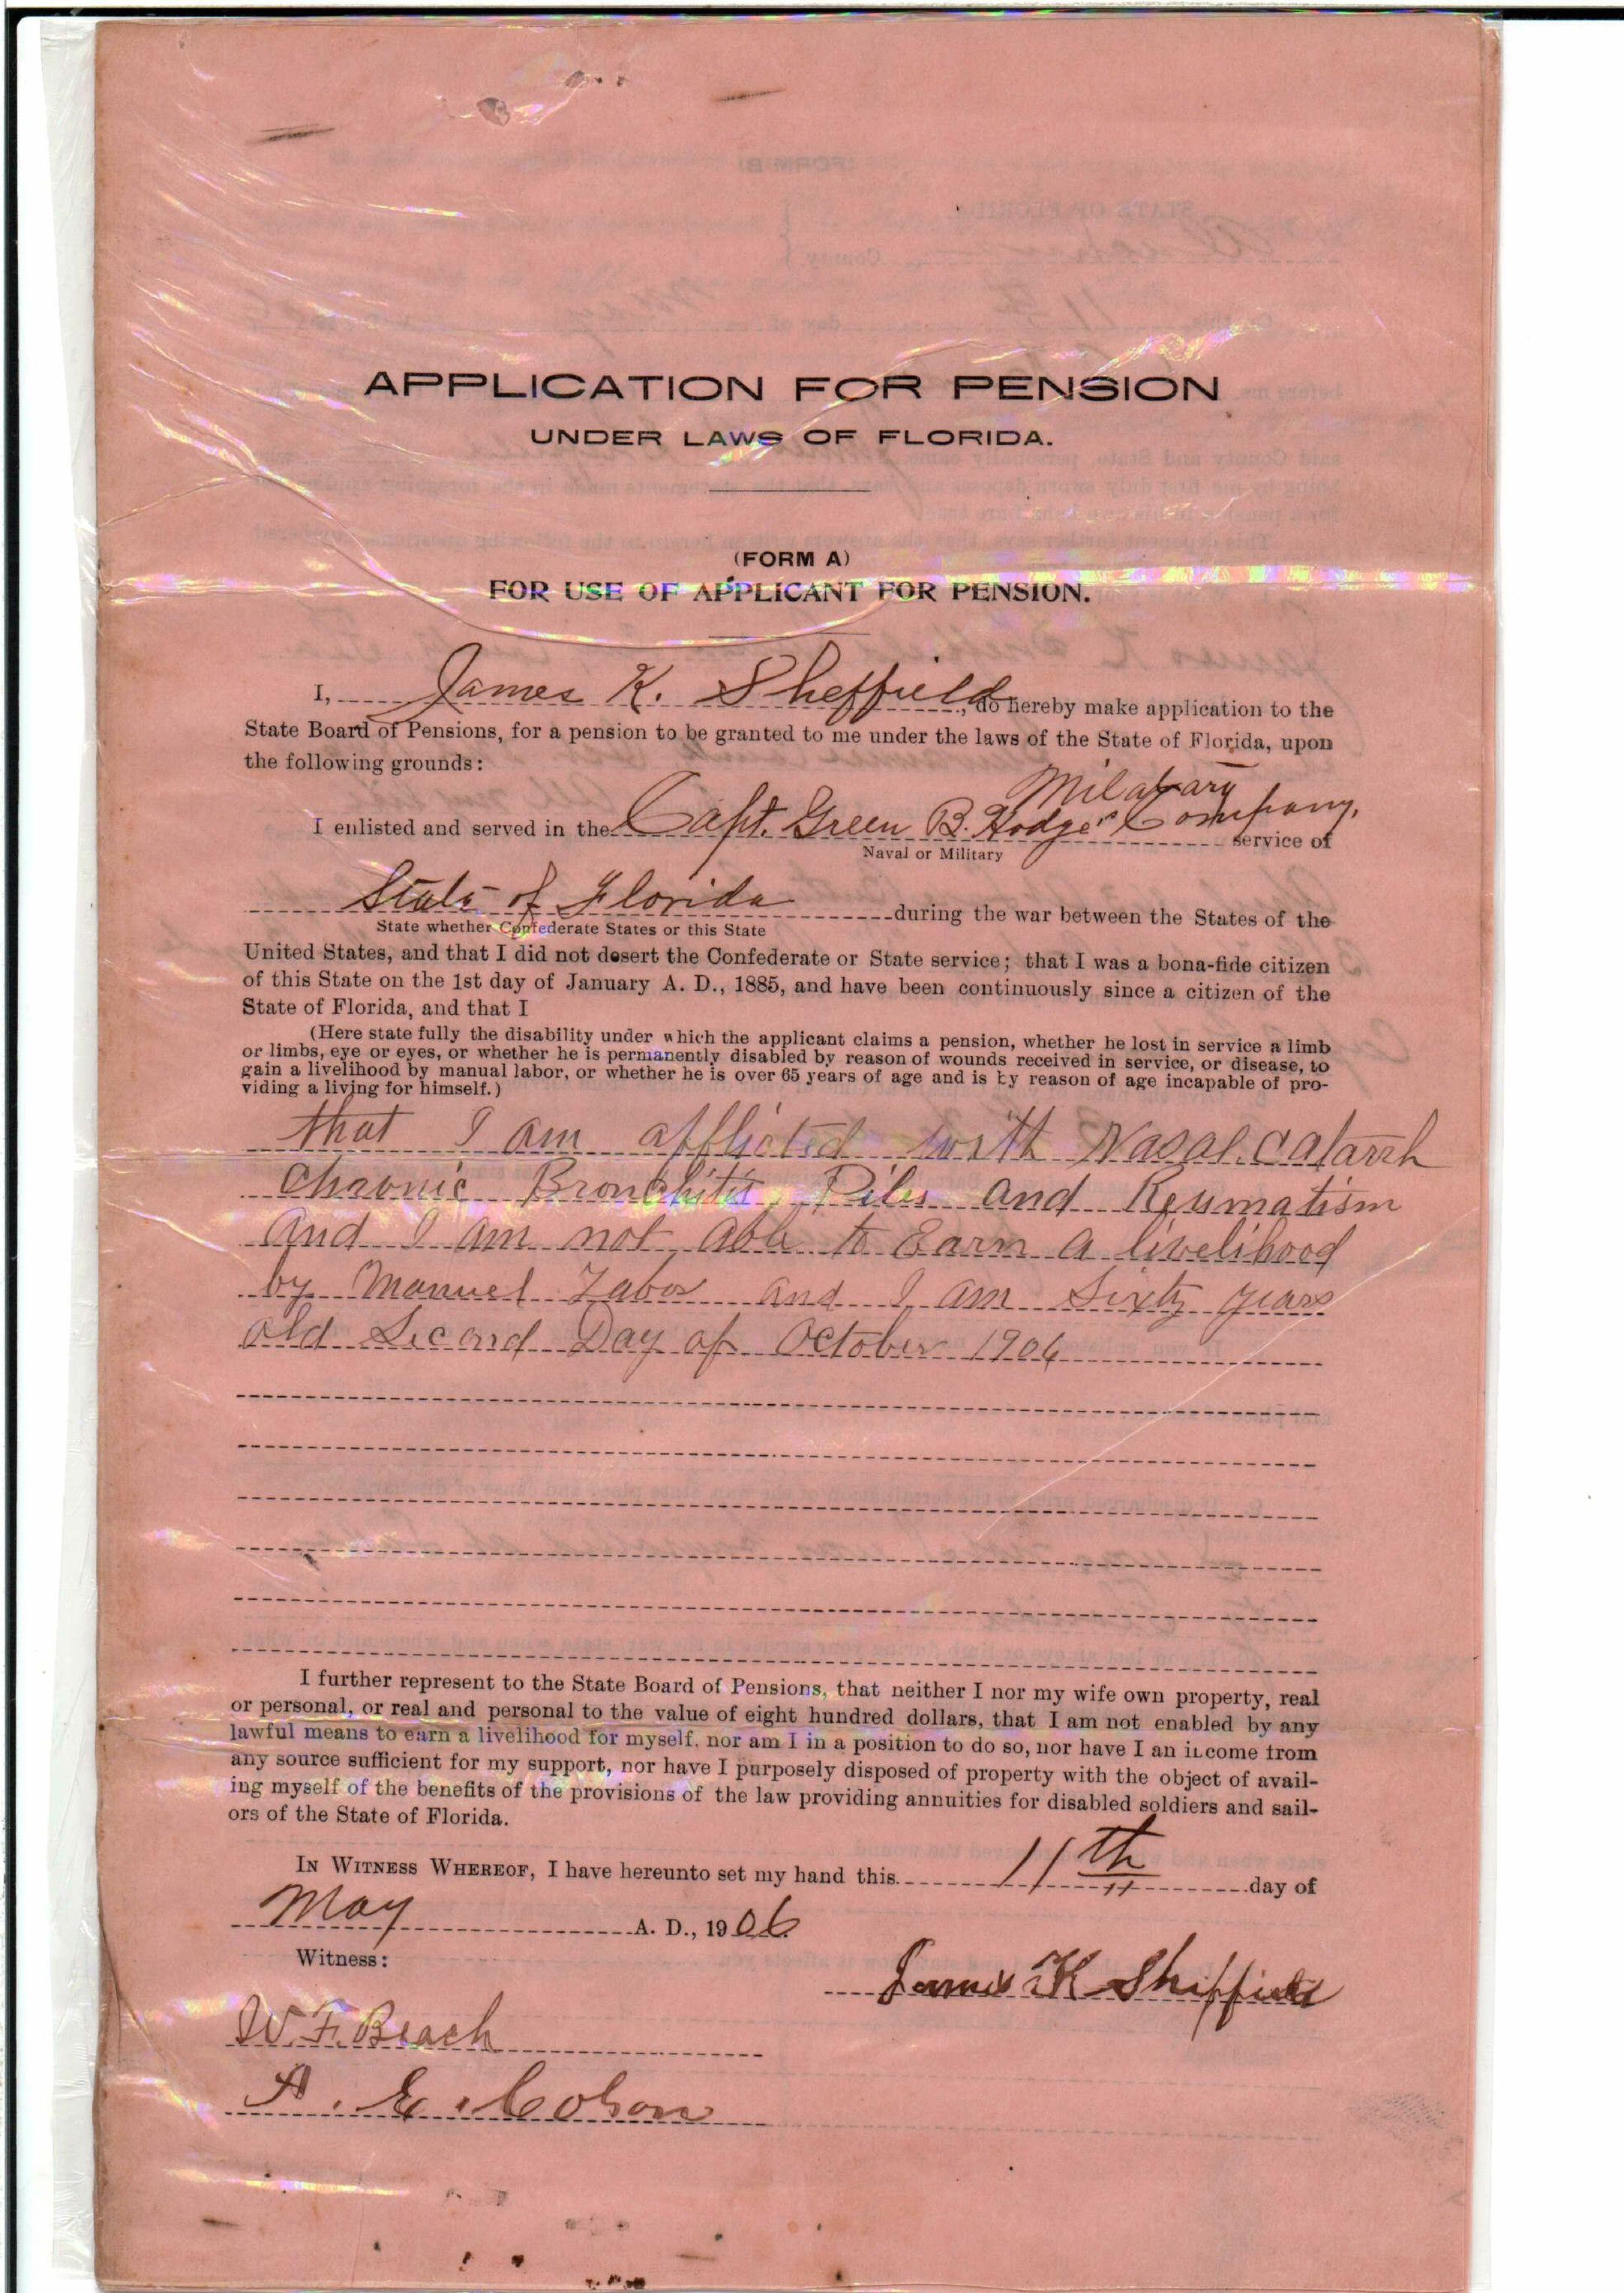 APPLICATION FOR PENSION
UNDER LAWS OF FLORIDA.
(FORM A)
FOR USE OF APPLICANT FOR PENSION.
I, James K. Sheffield, do hereby make application to the
State Board of Pensions, for a pension to be granted to me under the laws of the State of Florida, upon
the following grounds:
Milatary
I enlisted and served in the Capt. Green B. Hodge's Company, service of
Naval or Military
State of Florida during the war between the States of the
State whether Confederate States or this State
United States, and that I did not desert the Confederate or State service; that I was a bona-fide citizen
of this State on the 1st day of January A. D., 1885, and have been continuously since a citizen of the
State of Florida, and that I
(Here state fully the disability under which the applicant claims a pension, whether he lost in service a limb
or limbs, eye or eyes, or whether he is permanently disabled by reason of wounds received in service, or disease, to
gain a livelihood by manual labor, or whether he is over 65 years of age and is by reason of age incapable of pro-
viding a living for himself.)
that I am afflicted with Nasal catarrh
Chronic Bronchitis, Piles and Reumatism
and I am not able to Earn a livelihood
by Manuel Labor and I am Sixty years
old Second Day of October 1906
I further represent to the State Board of Pensions, that neither I nor my wife own property, real
or personal, or real and personal to the value of eight hundred dollars, that I am not enabled by any
lawful means to earn a livelihood for myself, nor am I in a position to do so, nor have I an income from
any source sufficient for my support, nor have I purposely disposed of property with the object of avail-
ing myself of the benefits of the provisions of the law providing annuities for disabled soldiers and sail-
ors of the State of Florida.
IN WITNESS WHEREOF, I have hereunto set my hand this 11th day of
May A. D., 1906
Witness:
James K Sheffield
W. F. Beach
A. E. Colson